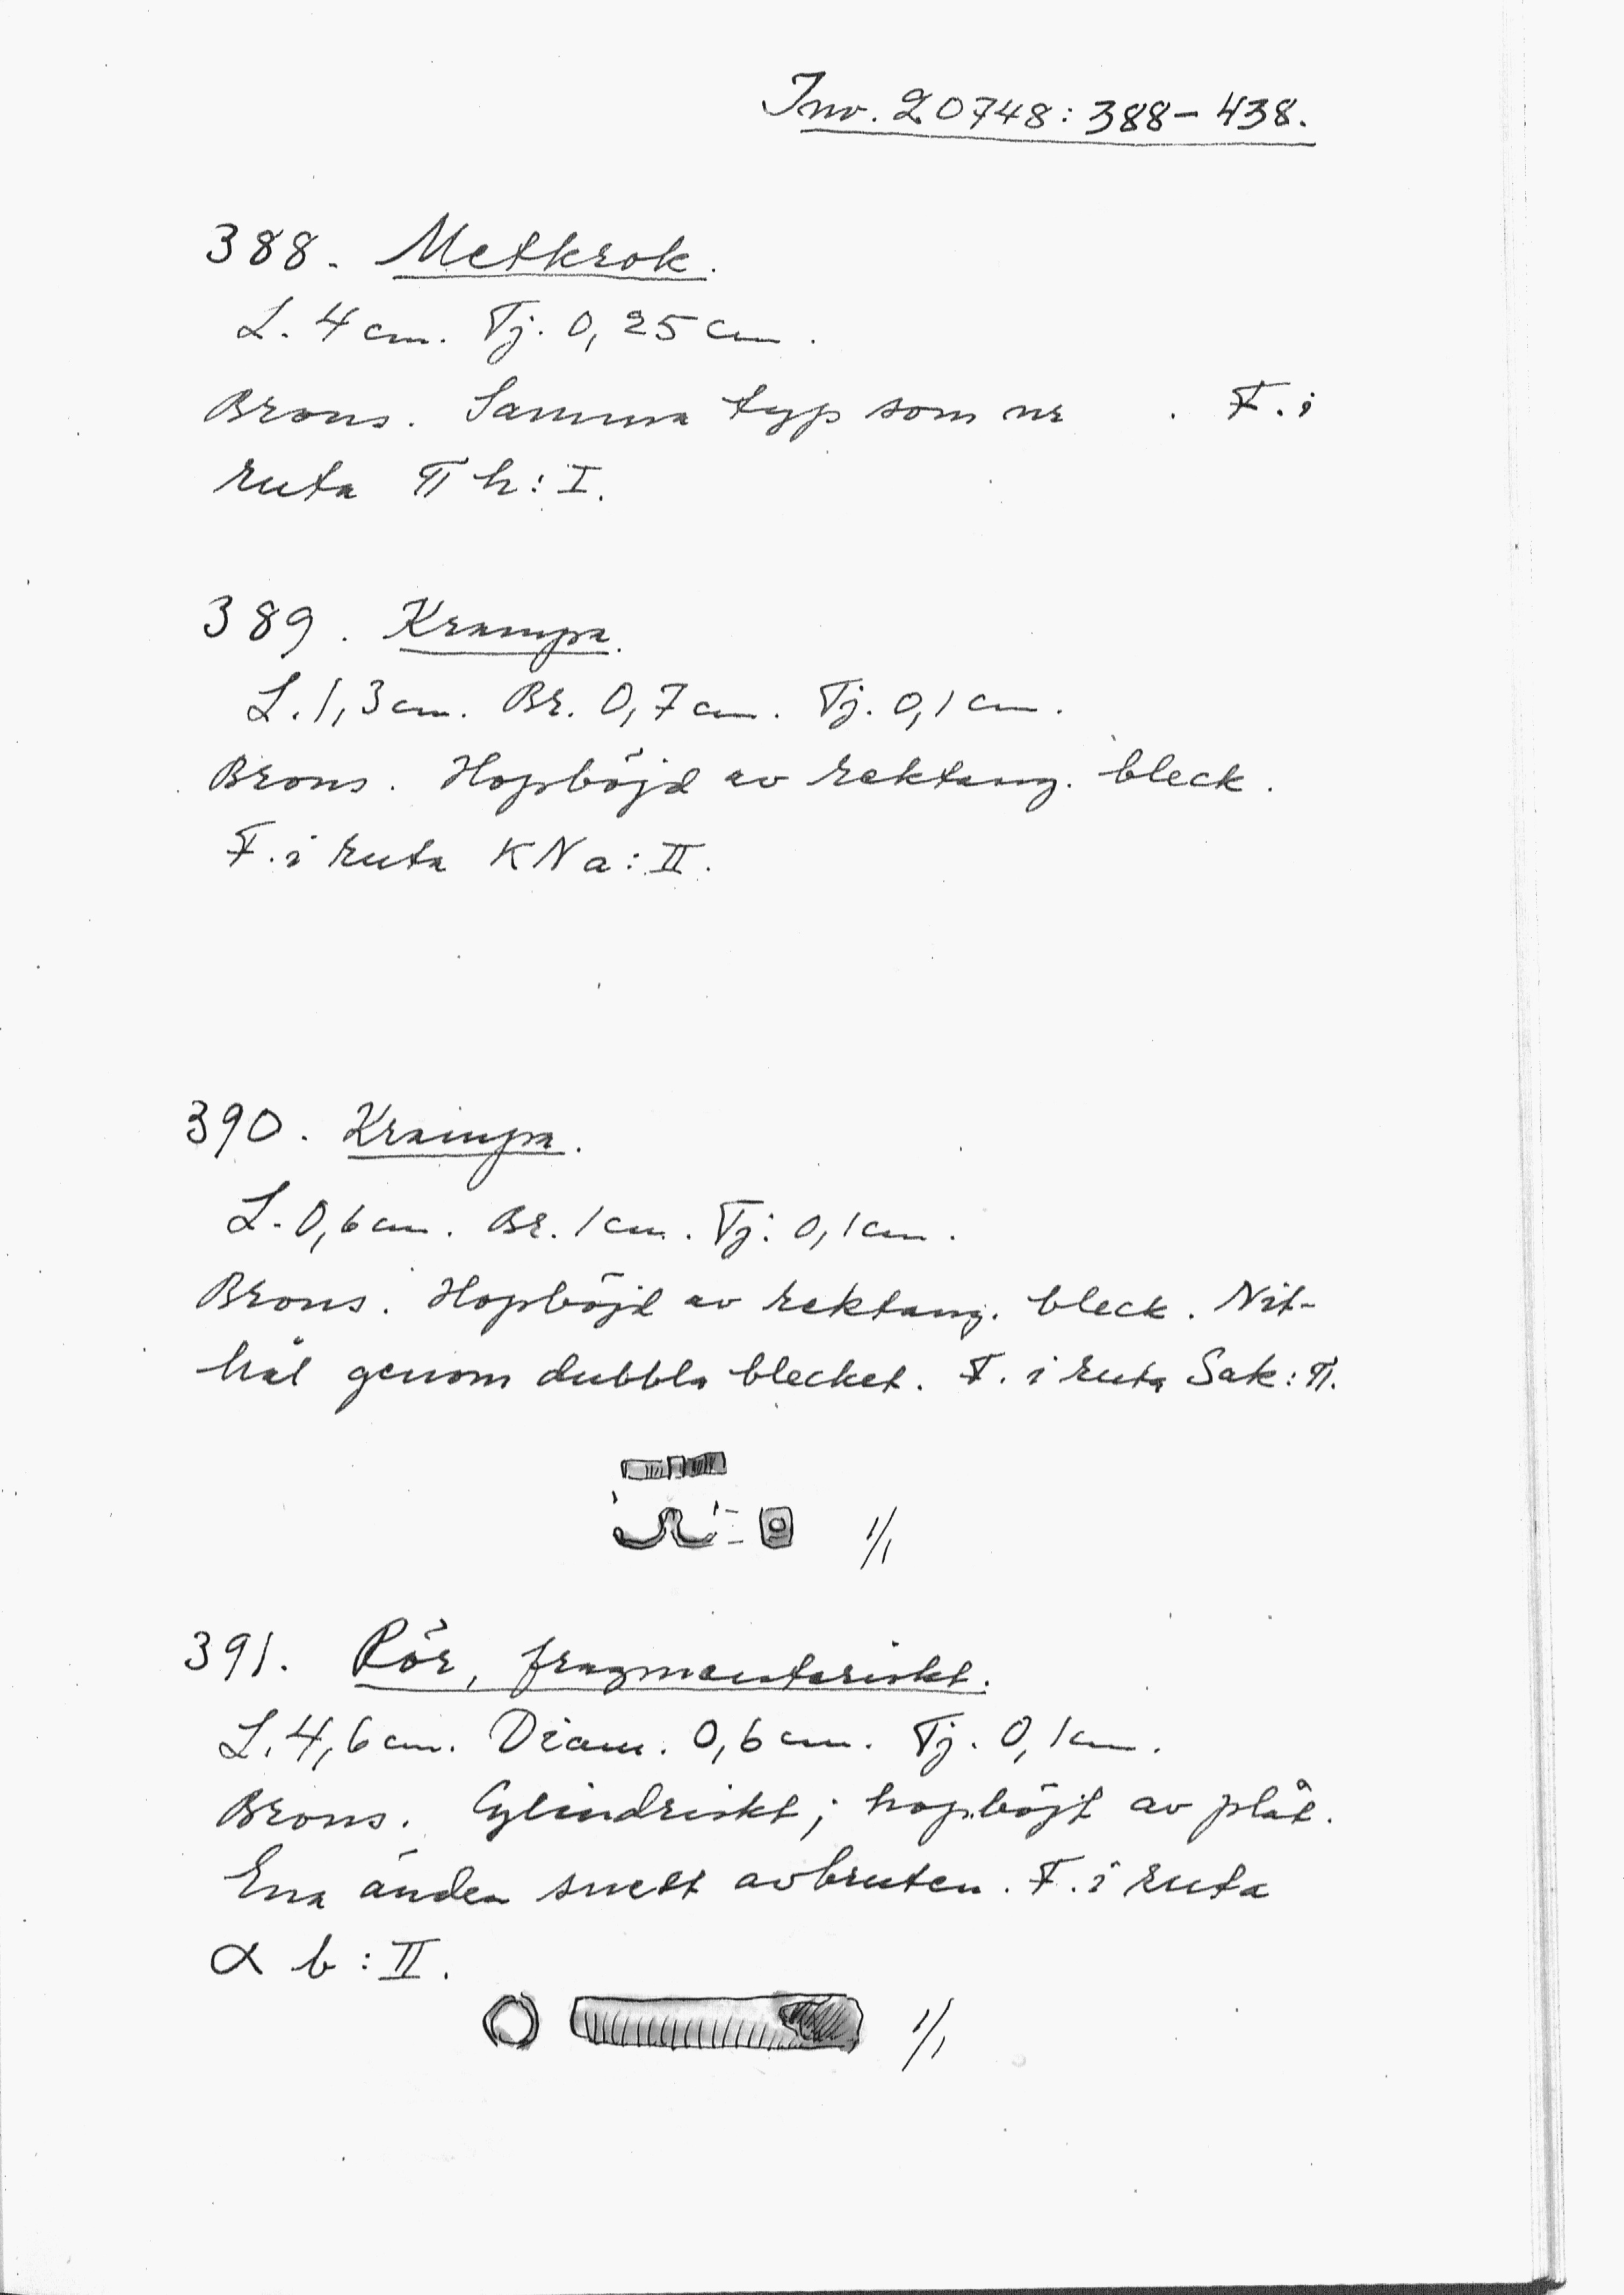 Inv. 20748: 388-438.
388. Metkrok.
L. 4 cm. Tj. 0,25 cm.
Brons. Samma typ som nr . F. i
ruta π h: I.
389. Krampa.
L. 1,3 cm. Br. 0,7 cm. Tj. 0,1 cm.
Brons. Hopböjd av rektang. bleck.
F. i ruta KN a: II.
390. Krampa.
L. 0,6 cm. Br. 1 cm. Tj: 0,1 cm.
Brons. Hopböjd av rektang. bleck. Nit-
hål genom dubbla blecket. F. i ruta Sak: π.
1/1
391. Rör, fragmentariskt.
L. 4,6 cm. Diam. 0,6 cm. Tj. 0,1 cm.
Brons. Cylindriskt; hopböjt av plåt.
Ena änden snett avbruten. F. i ruta
α b: II.
1/1